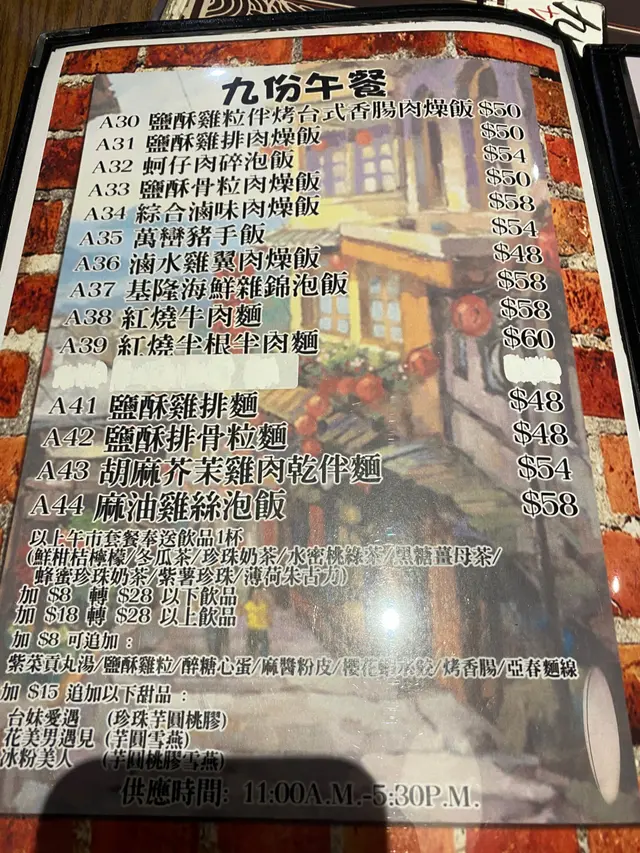 九份午餐
A30 鹽酥雞粒伴烤台式香腸肉燥飯 $50
A31 鹽酥雞排肉燥飯 $50
A32 蚵仔肉碎泡飯 $54
A33 鹽酥骨粒肉燥飯 $50
A34 綜合滷味肉燥飯 $58
A35 萬巒豬手飯 $54
A36 滷水雞翼肉燥飯 $48
A37 基隆海鮮雜錦泡飯 $58
A38 紅燒牛肉麵 $58
A39 紅燒半根半肉麵 $60
A41 鹽酥雞排麵 $48
A42 鹽酥排骨粒麵 $48
A43 胡麻芥茉雞肉乾伴麵 $54
A44 麻油雞絲泡飯 $58
以上午市套餐奉送飲品1杯
(鮮柑桔檸檬/冬瓜茶/珍珠奶茶/水密桃綠茶/黑糖薑母茶/
蜂蜜珍珠奶茶/紫薯珍珠/薄荷朱古力)
加 $8 轉 $28 以下飲品
加 $18 轉 $28 以上飲品
加 $8 可追加：
紫菜貢丸湯/鹽酥雞粒/醉糖心蛋/麻醬粉皮/櫻花蝦水餃/烤香腸/亞春麵線
加 $15 追加以下甜品：
台妹愛遇 (珍珠芋圓桃膠)
花美男遇見 (芋圓雪燕)
冰粉美人 (芋圓桃膠雪燕)
供應時間: 11:00A.M.-5:30P.M.